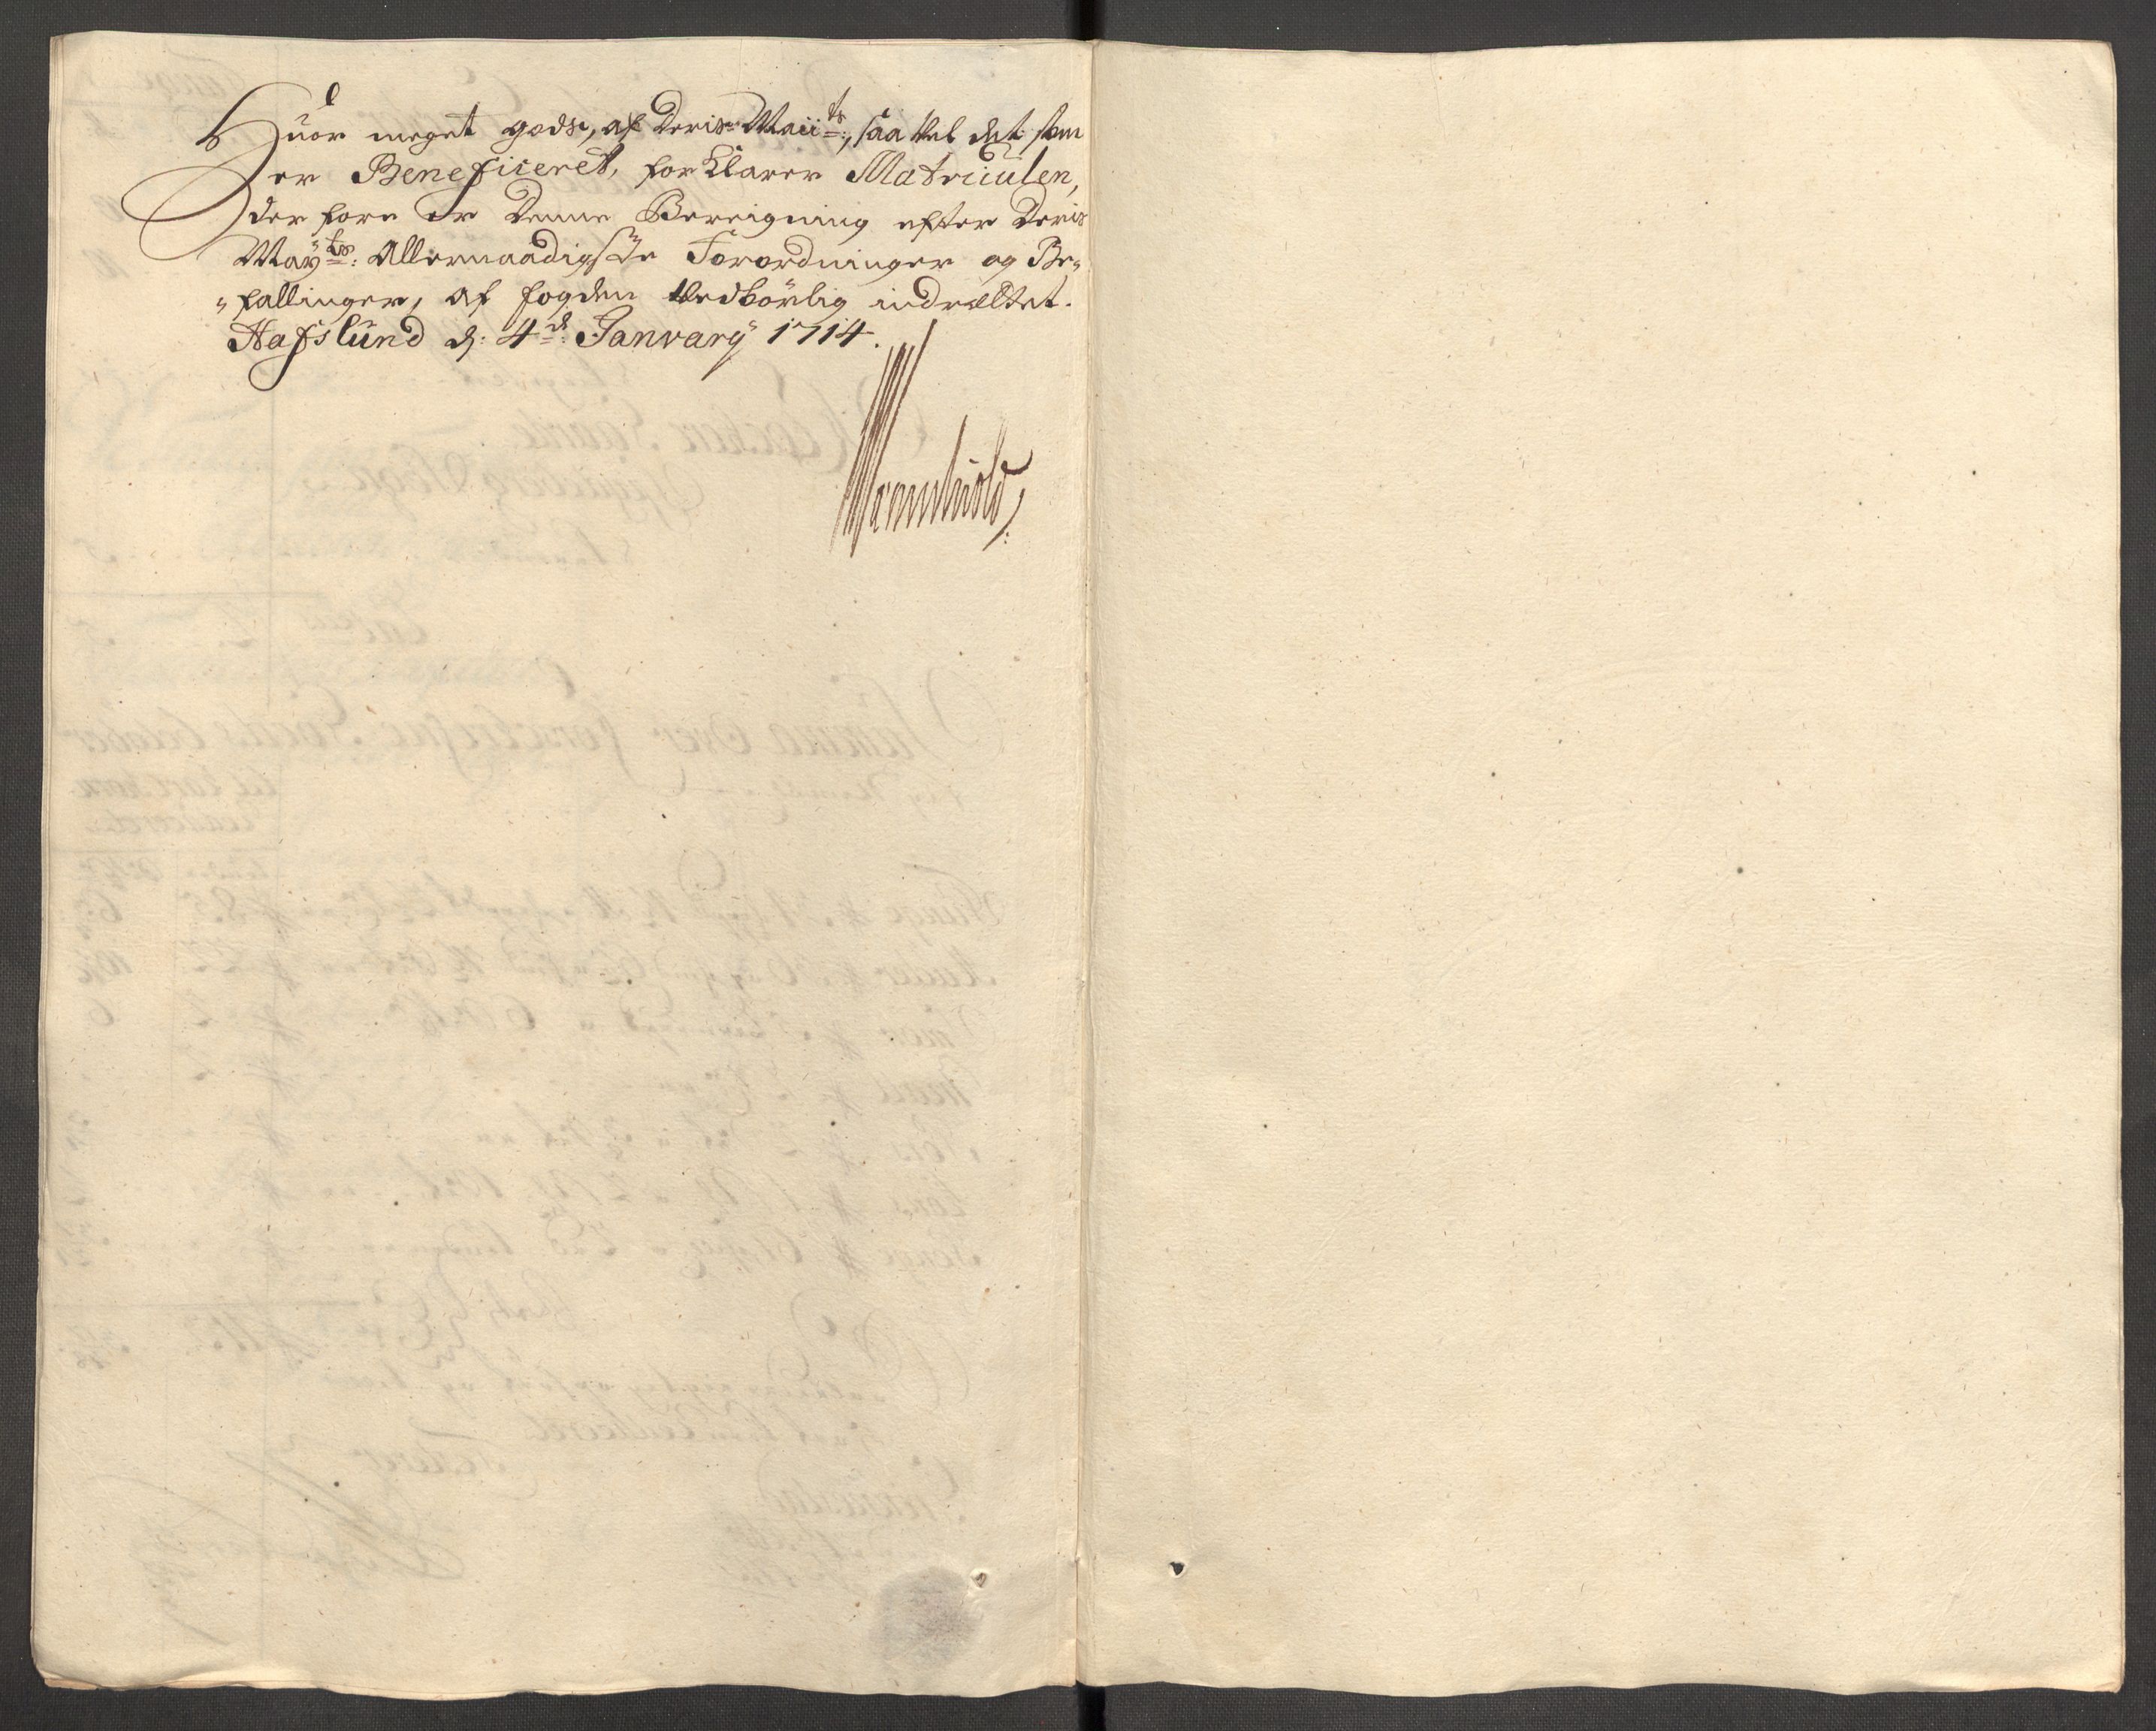 Huor meget godse, af Deris Maiits:, saa Vel det som
er Beneficeret, forklarer Matriculen,
der fore er Denne Bereigning efter Deris
Mayts: Allernaadigste Forordninger og Be„
„fallinger, af fogden Vedbörlig indrættet.
Hafslünd d: 4de: Janvary 1714.
Wernschiold